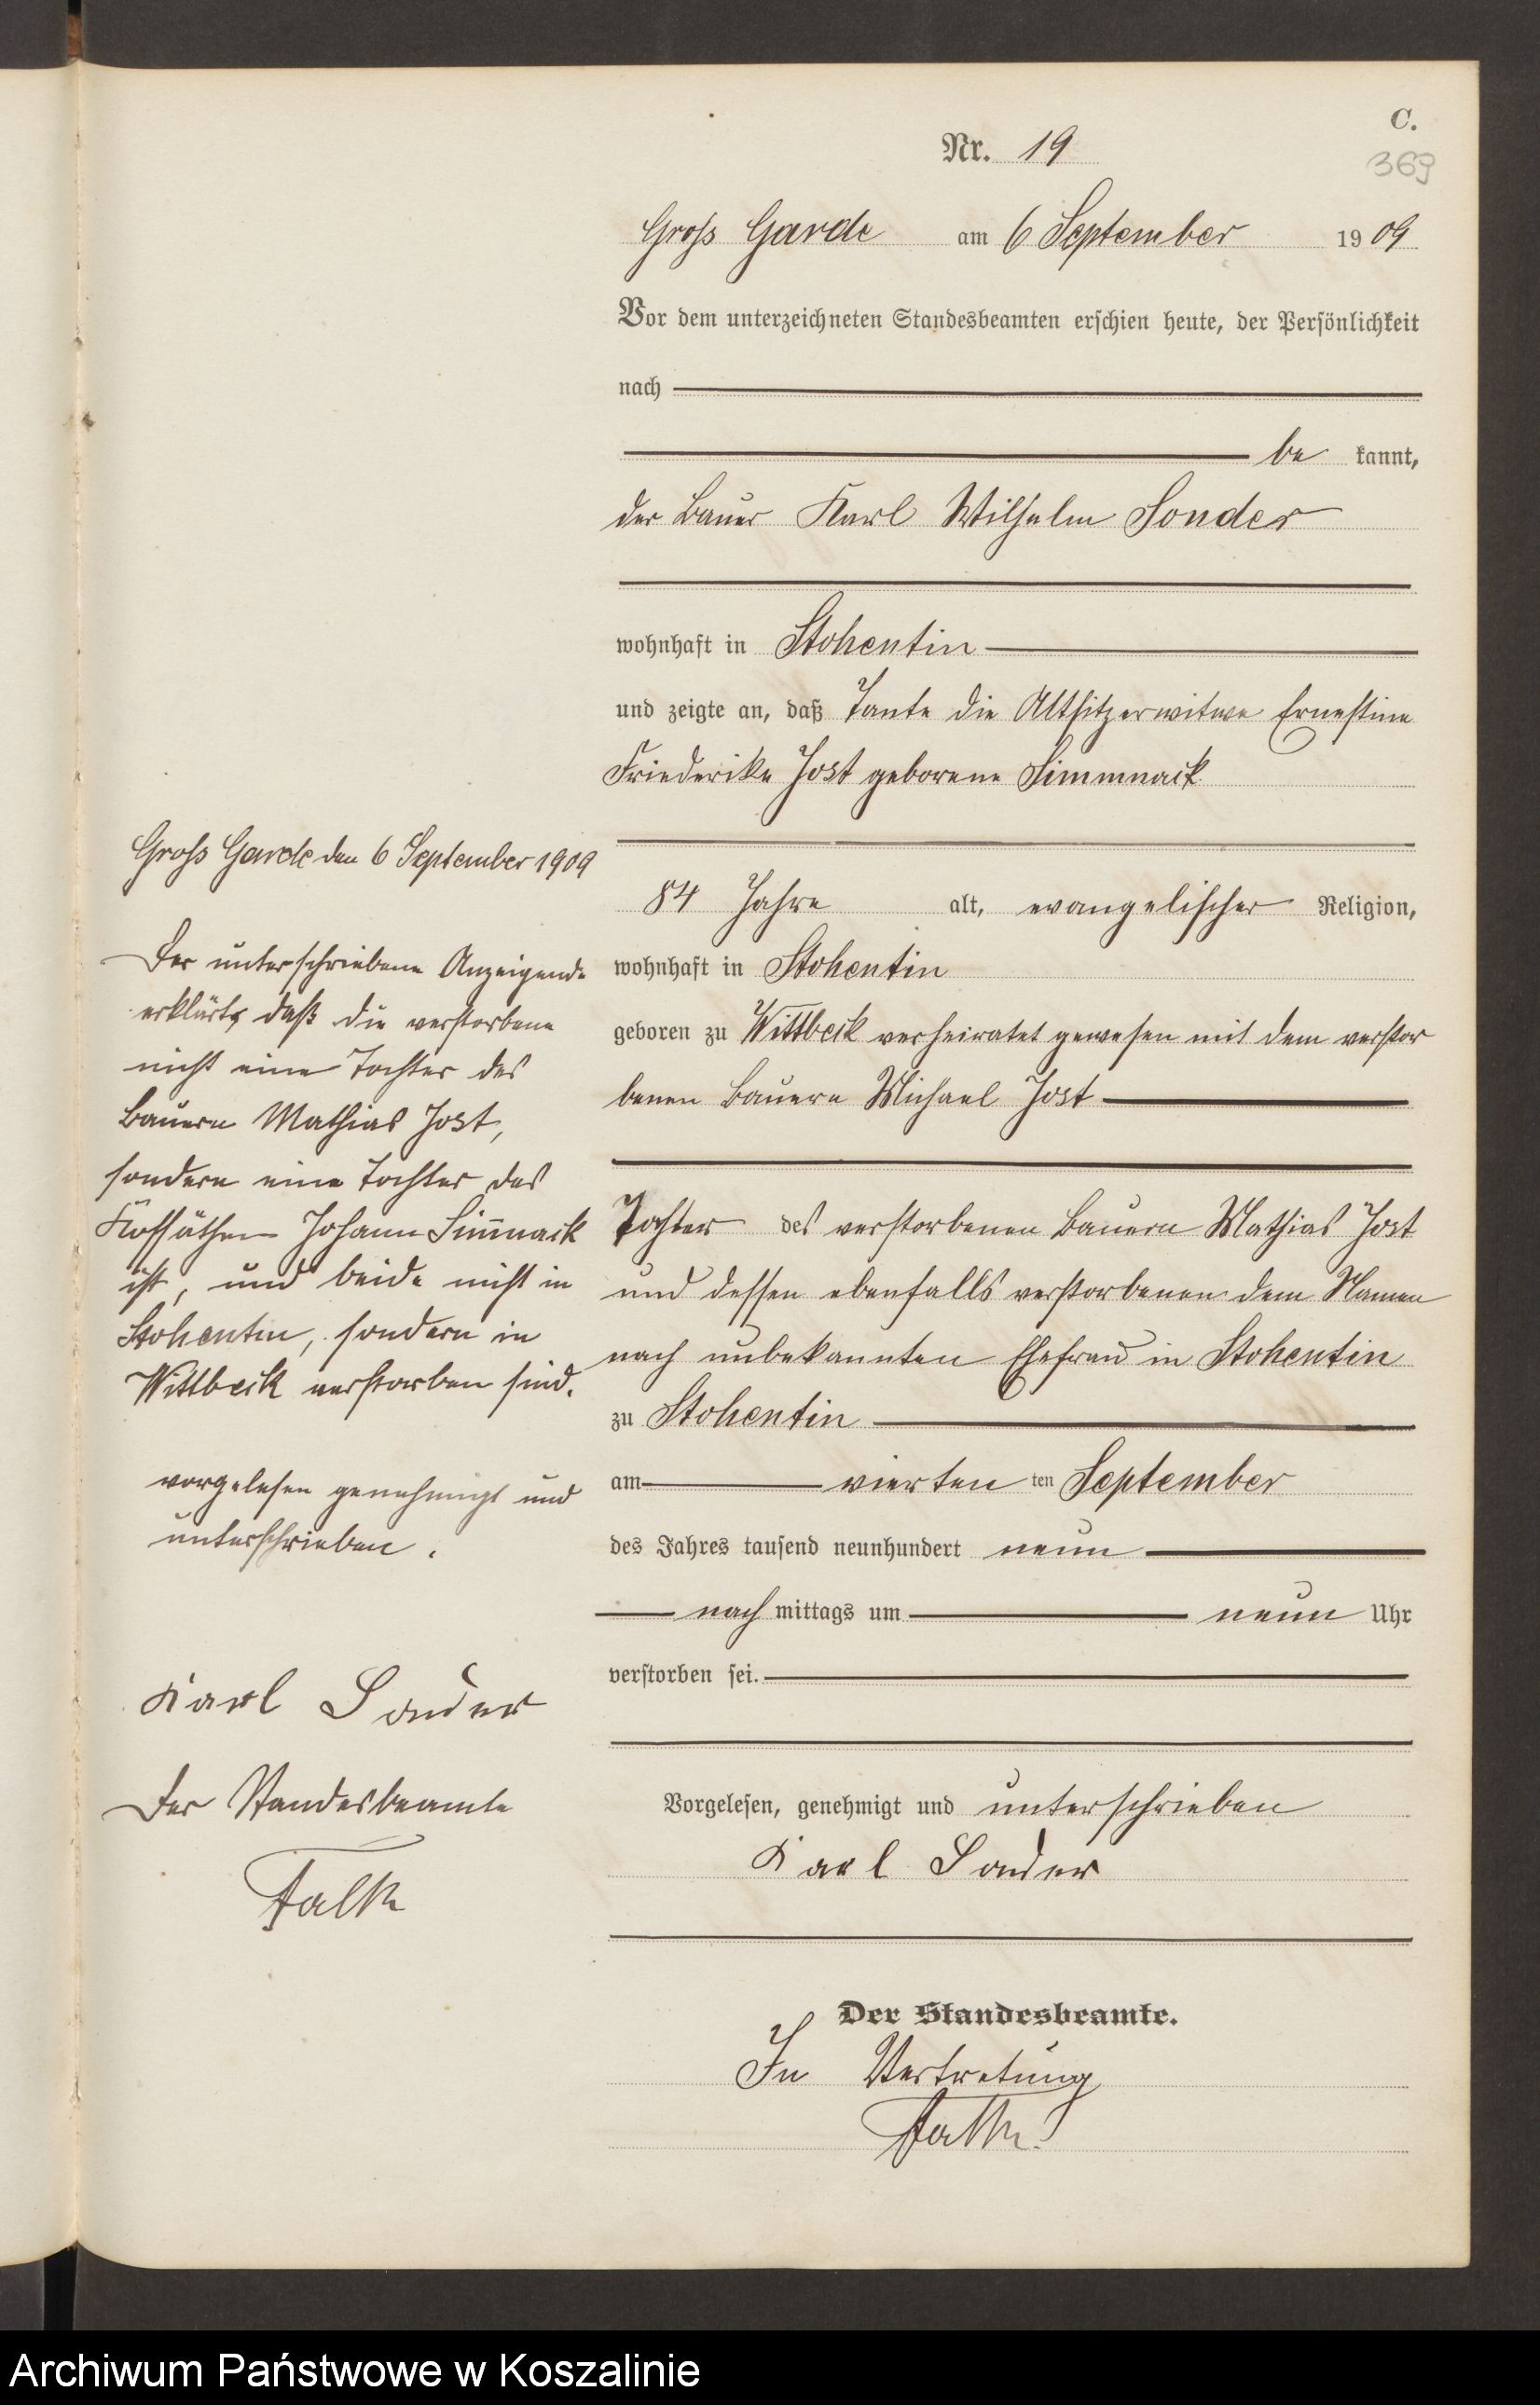 C.
369
Nr. 19
Groß Garde am 6 September 1909
Vor dem unterzeichneten Standesbeamten erschien heute, der Persönlichkeit
nach
be kannt,
der Bauer Karl Wilhelm Sonder
wohnhaft in Stohentin
und zeigte an, daß Tante die Altsitzerwitwe Ernestine
Friederike Jost geborene Simmnack
84 Jahre alt, evangelischer Religion,
wohnhaft in Stohentin
geboren zu Wittbeck verheiratet gewesen mit dem verstor
benen Bauern Michael Jost
Tochter des verstorbenen Bauern Mathias Jost
und dessen ebenfalls verstorbenen dem Namen
nach unbekannten Ehefrau in Stohentin
zu Stohentin
am vierten ten September
des Jahres tausend neunhundert neun
nach mittags um neun Uhr
verstorben sei.
Vorgelesen, genehmigt und unterschrieben
Karl Sonder
Der Standesbeamte.
In Vertretung
Falk
Groß Garde den 6 September 1909
Der unterschriebene Anzeigende
erklärt, daß die verstorbene
nicht eine Tochter des
Bauern Mathias Jost,
sondern eine Tochter des
Kossäthen Johann Sim̅nack
ist, und beide nicht in
Stohentin, sondern in
Wittbeck verstorben sind.
vorgelesen genehmigt und
unterschrieben.
Karl Sonder
Der Standesbeamte
Falk
Archiwum Państwowe w Koszalinie